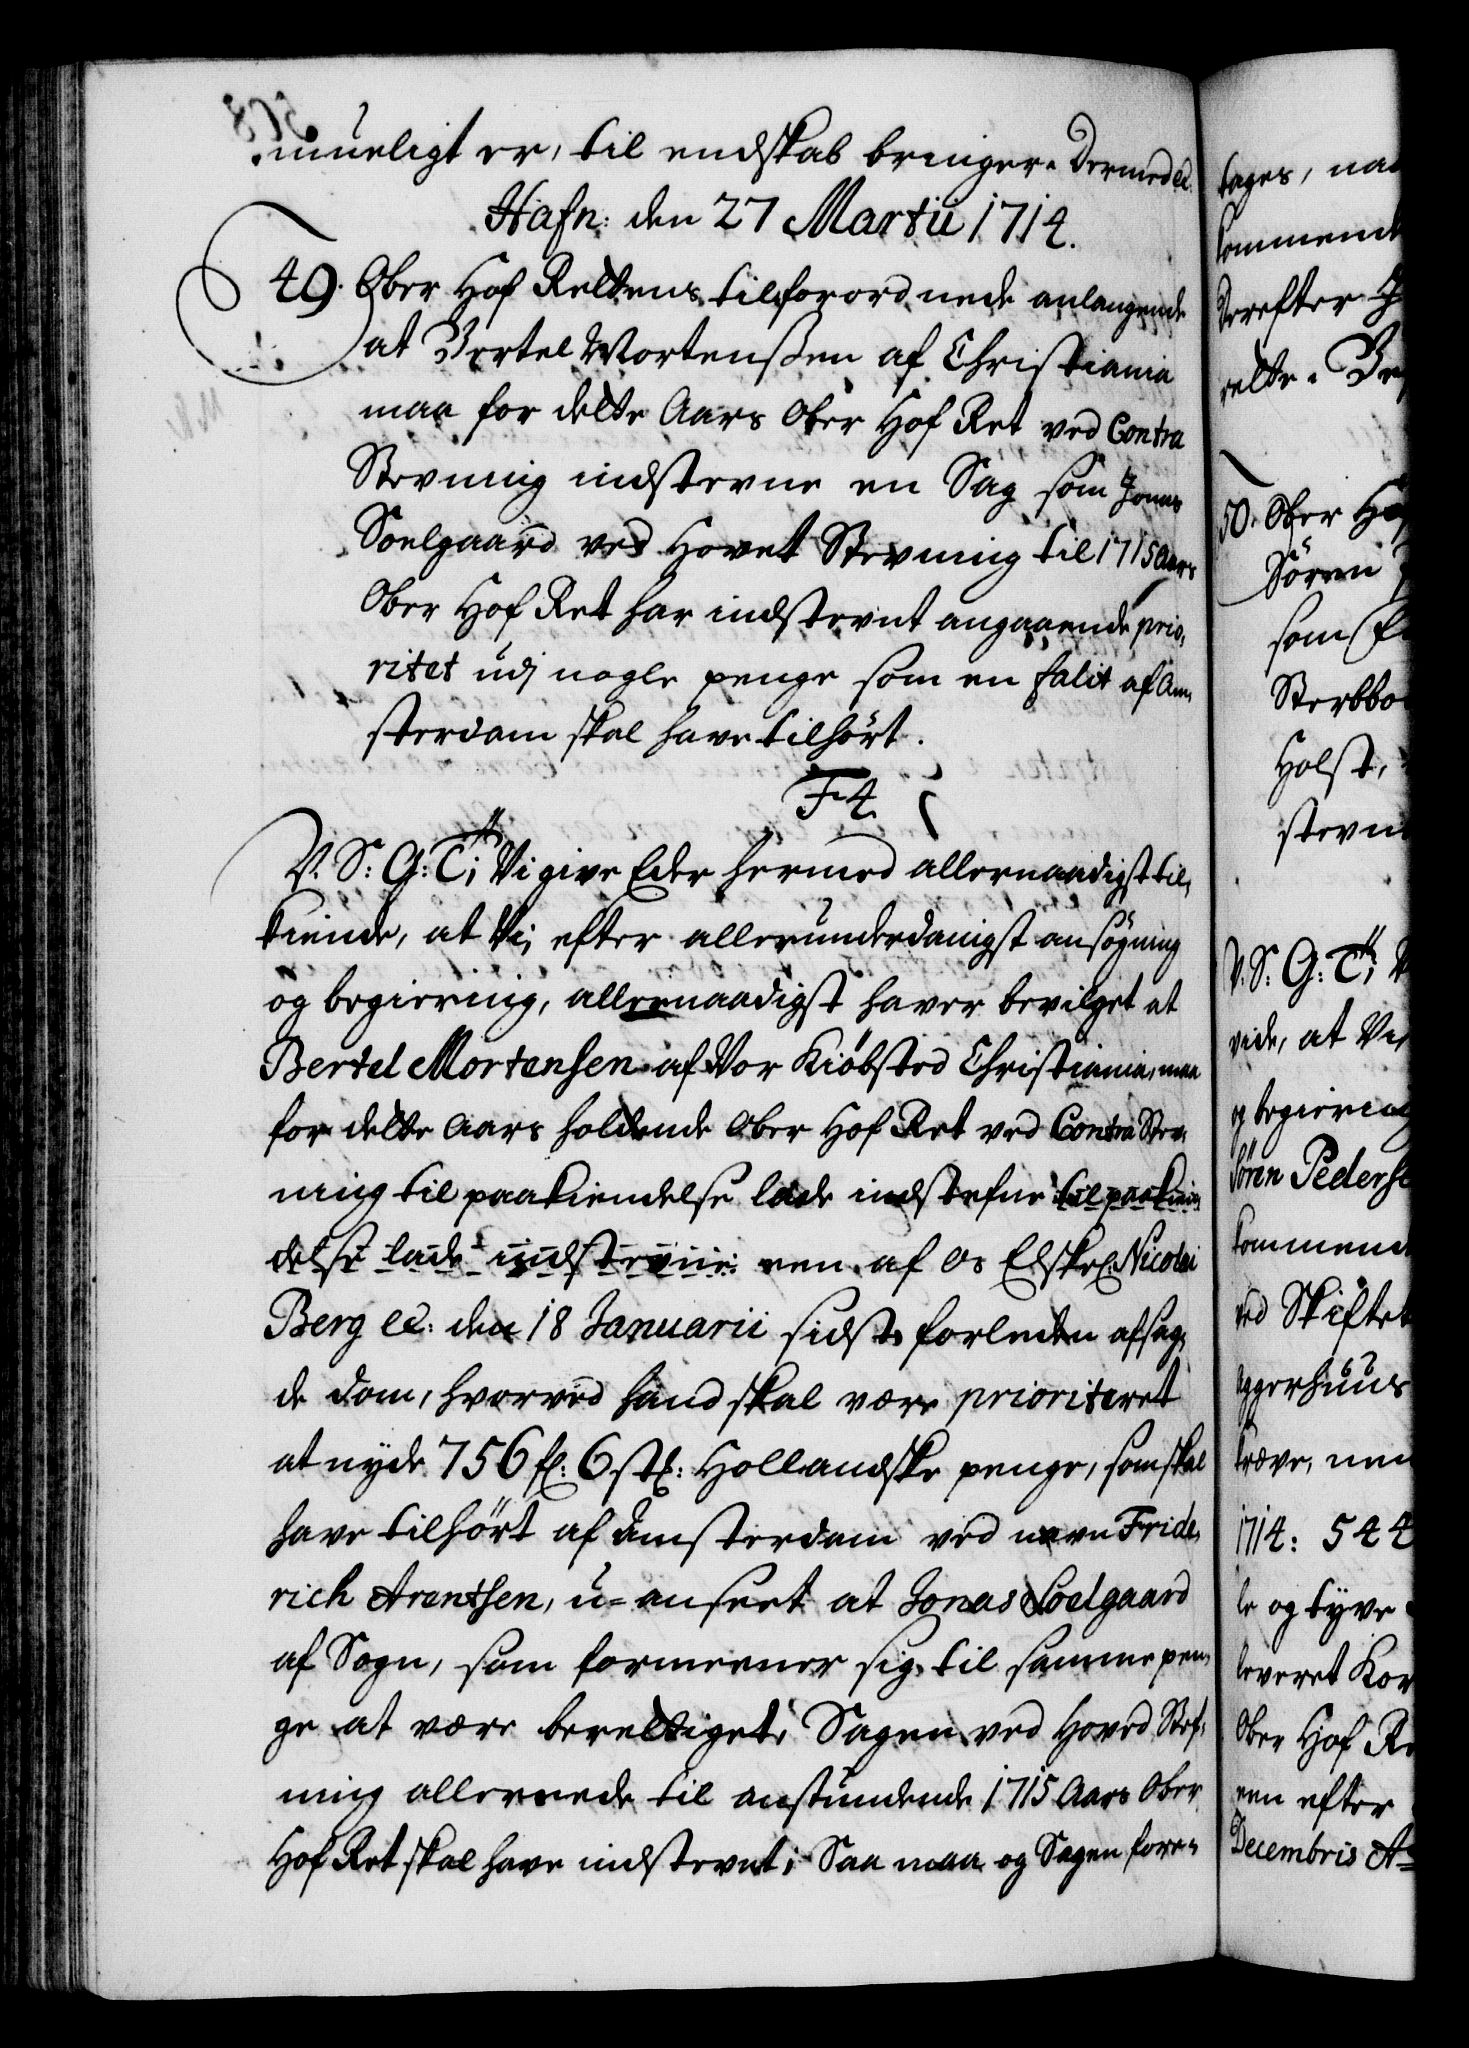 mueligt er, til endskab bringer. Dermed ec.
Hafn: den 27 Martii 1714.
49. Ober Hof Rettens tilforordnede anlangende
at Bertel Mortenssen af Christiania
maa for dette Aars Ober Hof Ret ved Contra
Stevning indstevne en Sag som Jonas
Soelgaard ved Hovet Stevning til 1715 Aars
Ober Hof Ret har indstevnt angaaende prio,
ritet udj nogle penge som en falit af Am,
sterdam skal have tilhørt.
F4.
V. S: G: T; Vi give Eder hermed allernaadigst til,
kiende, at Vi, efter allerunderdanigst ansøgning
og begiering, allernaadigst haver bevilget at
Bertel Mortensen af Vor Kiøbsted Christiania, maa
for dette Aars holdende Ober Hof Ret ved Contra Stev,
ning til paakiendelse lade indstefne til paakien,
delse lade indstevne een af Os Elskel: Nicolai
Berg ec: den 18 Januarii sidst forleden afsag,
de dom, hvorved hand skal være prioriteret
at nyde 756 fl: 6 st: Hollandske penge, som skal
have tilhørt af Amsterdam ved navn Fride,
rich Arentsen, u-anseet at Jonas Soelgaard
af Sogn, som formeener sig til samme pen,
ge at være berettiget, Sagen ved Hoved Stef,
ning allereede til anstundende 1715 Aars Ober
Hof Ret skal have indstevnt; Saa maa og Sagen fore-
tages, naa
kommend
derefter
rette. Be
50. Ober Ho
Sören
som
Sterbbo
Holst,
stevn
V. S: G: T; V
vide, at Vi
og begiering
Sören Peders
kommen
ved Skiftet
Aggerhuus
kræve, nem
1714: 544
le og tyve
leveret Kor
Ober Hof Re
een efter
Decembris A